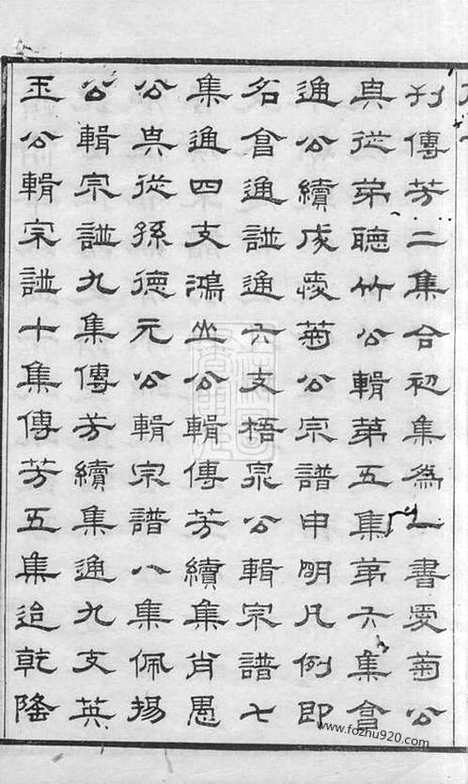 刊傳芳二集合初集為一書愛菊公
與從弟聽竹公輯第五集第六集會
通公續成愛菊公宗譜申明凡例即
名會通譜通六支梧泉公輯宗譜七
集通四支鴻坐公輯傳芳續集肖愚
公與從孫德元公輯宗譜八集佩揚
公輯宗譜九集傳芳續集通九支英
玉公輯宗譜十集傳芳五集迨乾隆
www.fozhu920.com